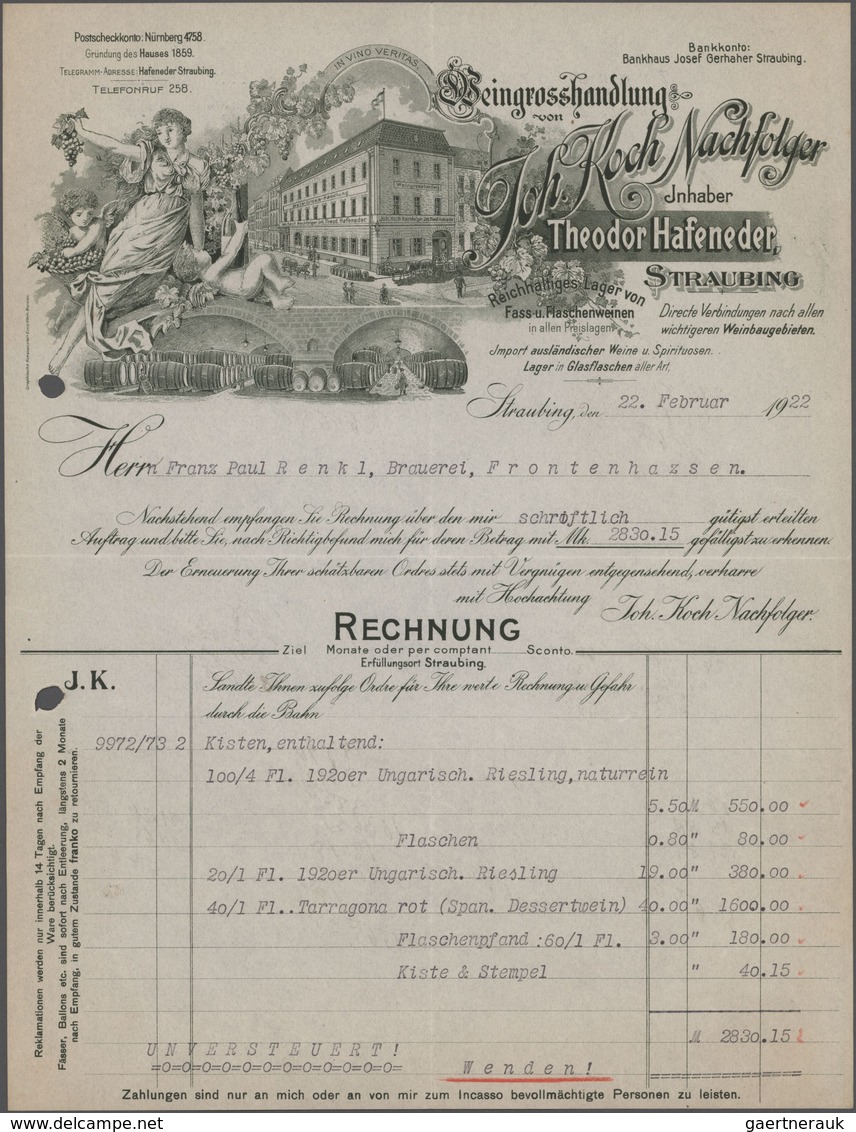 Postscheckkonto: Nürnberg 4758.
Gründung des Hauses 1859.
TELEGRAMM-ADRESSE: Hafeneder Straubing.
TELEFONRUF 258.
Bankkonto:
Bankhaus Josef Gerhaher Straubing.
IN VINO VERITAS
Weingrosshandlung
von
Joh. Koch Nachfolger
Jnhaber
Theodor Hafeneder,
STRAUBING
Reichhaltiges Lager von
Fass- u. Flaschenweinen
in allen Preislagen
Directe Verbindungen nach allen
wichtigeren Weinbaugebieten.
Import ausländischer Weine u. Spirituosen.
Lager in Glasflaschen aller Art.
Straubing, den 22. Februar 1922
Herrn Franz Paul Renkl, Brauerei, Frontenhazsen.
Nachstehend empfangen Sie Rechnung über den mir schriftlich gütigst erteilten
Auftrag und bitte Sie, nach Richtigbefund mich für deren Betrag mit Mk. 2830.15 gefälligst zu erkennen.
Der Erneuerung Ihrer schätzbaren Ordres stets mit Vergnügen entgegensehend, verharre
mit Hochachtung Joh. Koch Nachfolger.
RECHNUNG
Ziel Monate oder per comptant Sconto.
Erfüllungsort Straubing.
J. K.
Sandte Ihnen zufolge Ordre für Ihre werte Rechnung u. Gefahr
durch die Bahn
9972/73 2 Kisten, enthaltend:
100/4 Fl. 1920er Ungarisch. Riesling, naturrein
5.50 M 550.00
Flaschen 0.80 " 80.00
20/1 Fl. 1920er Ungarisch. Riesling 19.00 " 380.00
40/1 Fl.. Tarragona rot (Span. Dessertwein) 40.00 " 1600.00
Flaschenpfand :60/1 Fl. 3.00 " 180.00
Kiste & Stempel " 40.15
M 2830.15
UNVERSTEUERT!
=O=O=O=O=O=O=O=O=O=O=O=O=
Wenden!
Reklamationen werden nur innerhalb 14 Tagen nach Empfang der
Ware berücksichtigt.
Fässer, Ballons etc. sind sofort nach Entleerung, längstens 2 Monate
nach Empfang, in gutem Zustande franko zu retournieren.
Zahlungen sind nur an mich oder an von mir zum Incasso bevollmächtigte Personen zu leisten.
gaertnerauk